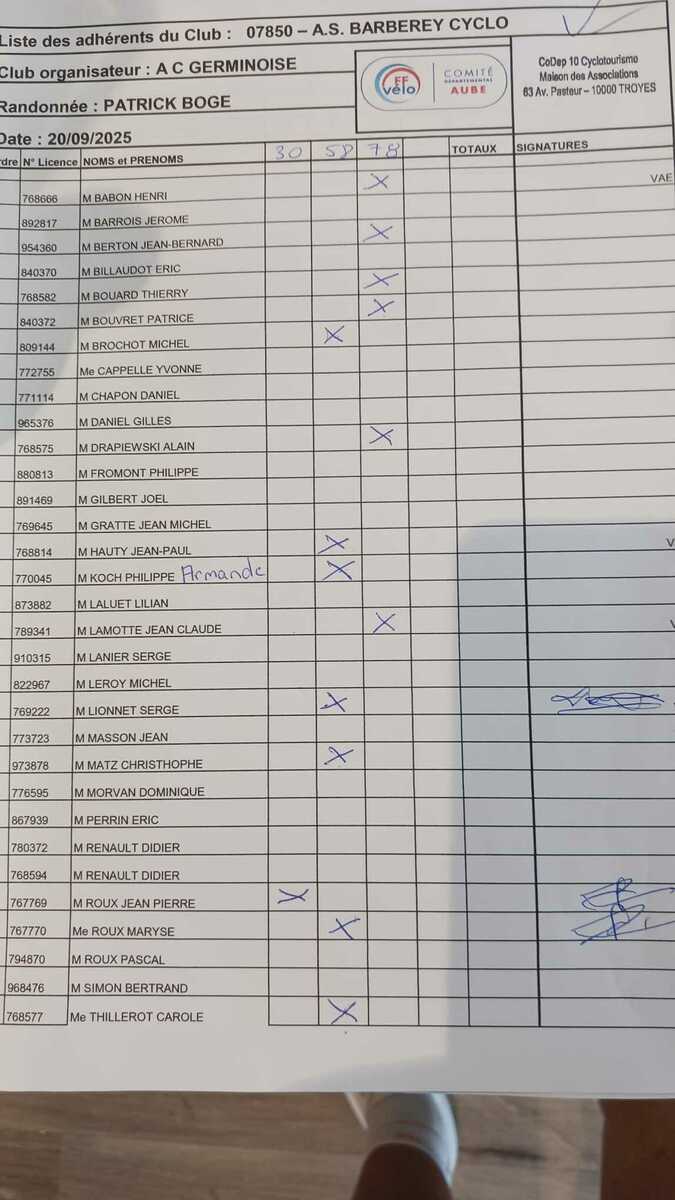 Liste des adhérents du Club : 07850 – A.S. BARBEREY CYCLO
Club organisateur : A C GERMINOISE
Randonnée : PATRICK BOGE
Date : 20/09/2025
FF vélo
COMITÉ
DÉPARTEMENTAL
AUBE
CoDep 10 Cyclotourisme
Maison des Associations
63 Av. Pasteur – 10000 TROYES
rdre N° Licence NOMS et PRENOMS 30 58 78 TOTAUX SIGNATURES
768666 M BABON HENRI X VAE
892817 M BARROIS JEROME
954360 M BERTON JEAN-BERNARD X
840370 M BILLAUDOT ERIC
768582 M BOUARD THIERRY X
840372 M BOUVRET PATRICE X
809144 M BROCHOT MICHEL X
772755 Me CAPPELLE YVONNE
771114 M CHAPON DANIEL
965376 M DANIEL GILLES
768575 M DRAPIEWSKI ALAIN X
880813 M FROMONT PHILIPPE
891469 M GILBERT JOEL
769645 M GRATTE JEAN MICHEL
768814 M HAUTY JEAN-PAUL X V
770045 M KOCH PHILIPPE Armande X
873882 M LALUET LILIAN
789341 M LAMOTTE JEAN CLAUDE X
910315 M LANIER SERGE
822967 M LEROY MICHEL
769222 M LIONNET SERGE X
773723 M MASSON JEAN
973878 M MATZ CHRISTHOPHE X
776595 M MORVAN DOMINIQUE
867939 M PERRIN ERIC
780372 M RENAULT DIDIER
768594 M RENAULT DIDIER
767769 M ROUX JEAN PIERRE X
767770 Me ROUX MARYSE X
794870 M ROUX PASCAL
968476 M SIMON BERTRAND
768577 Me THILLEROT CAROLE X